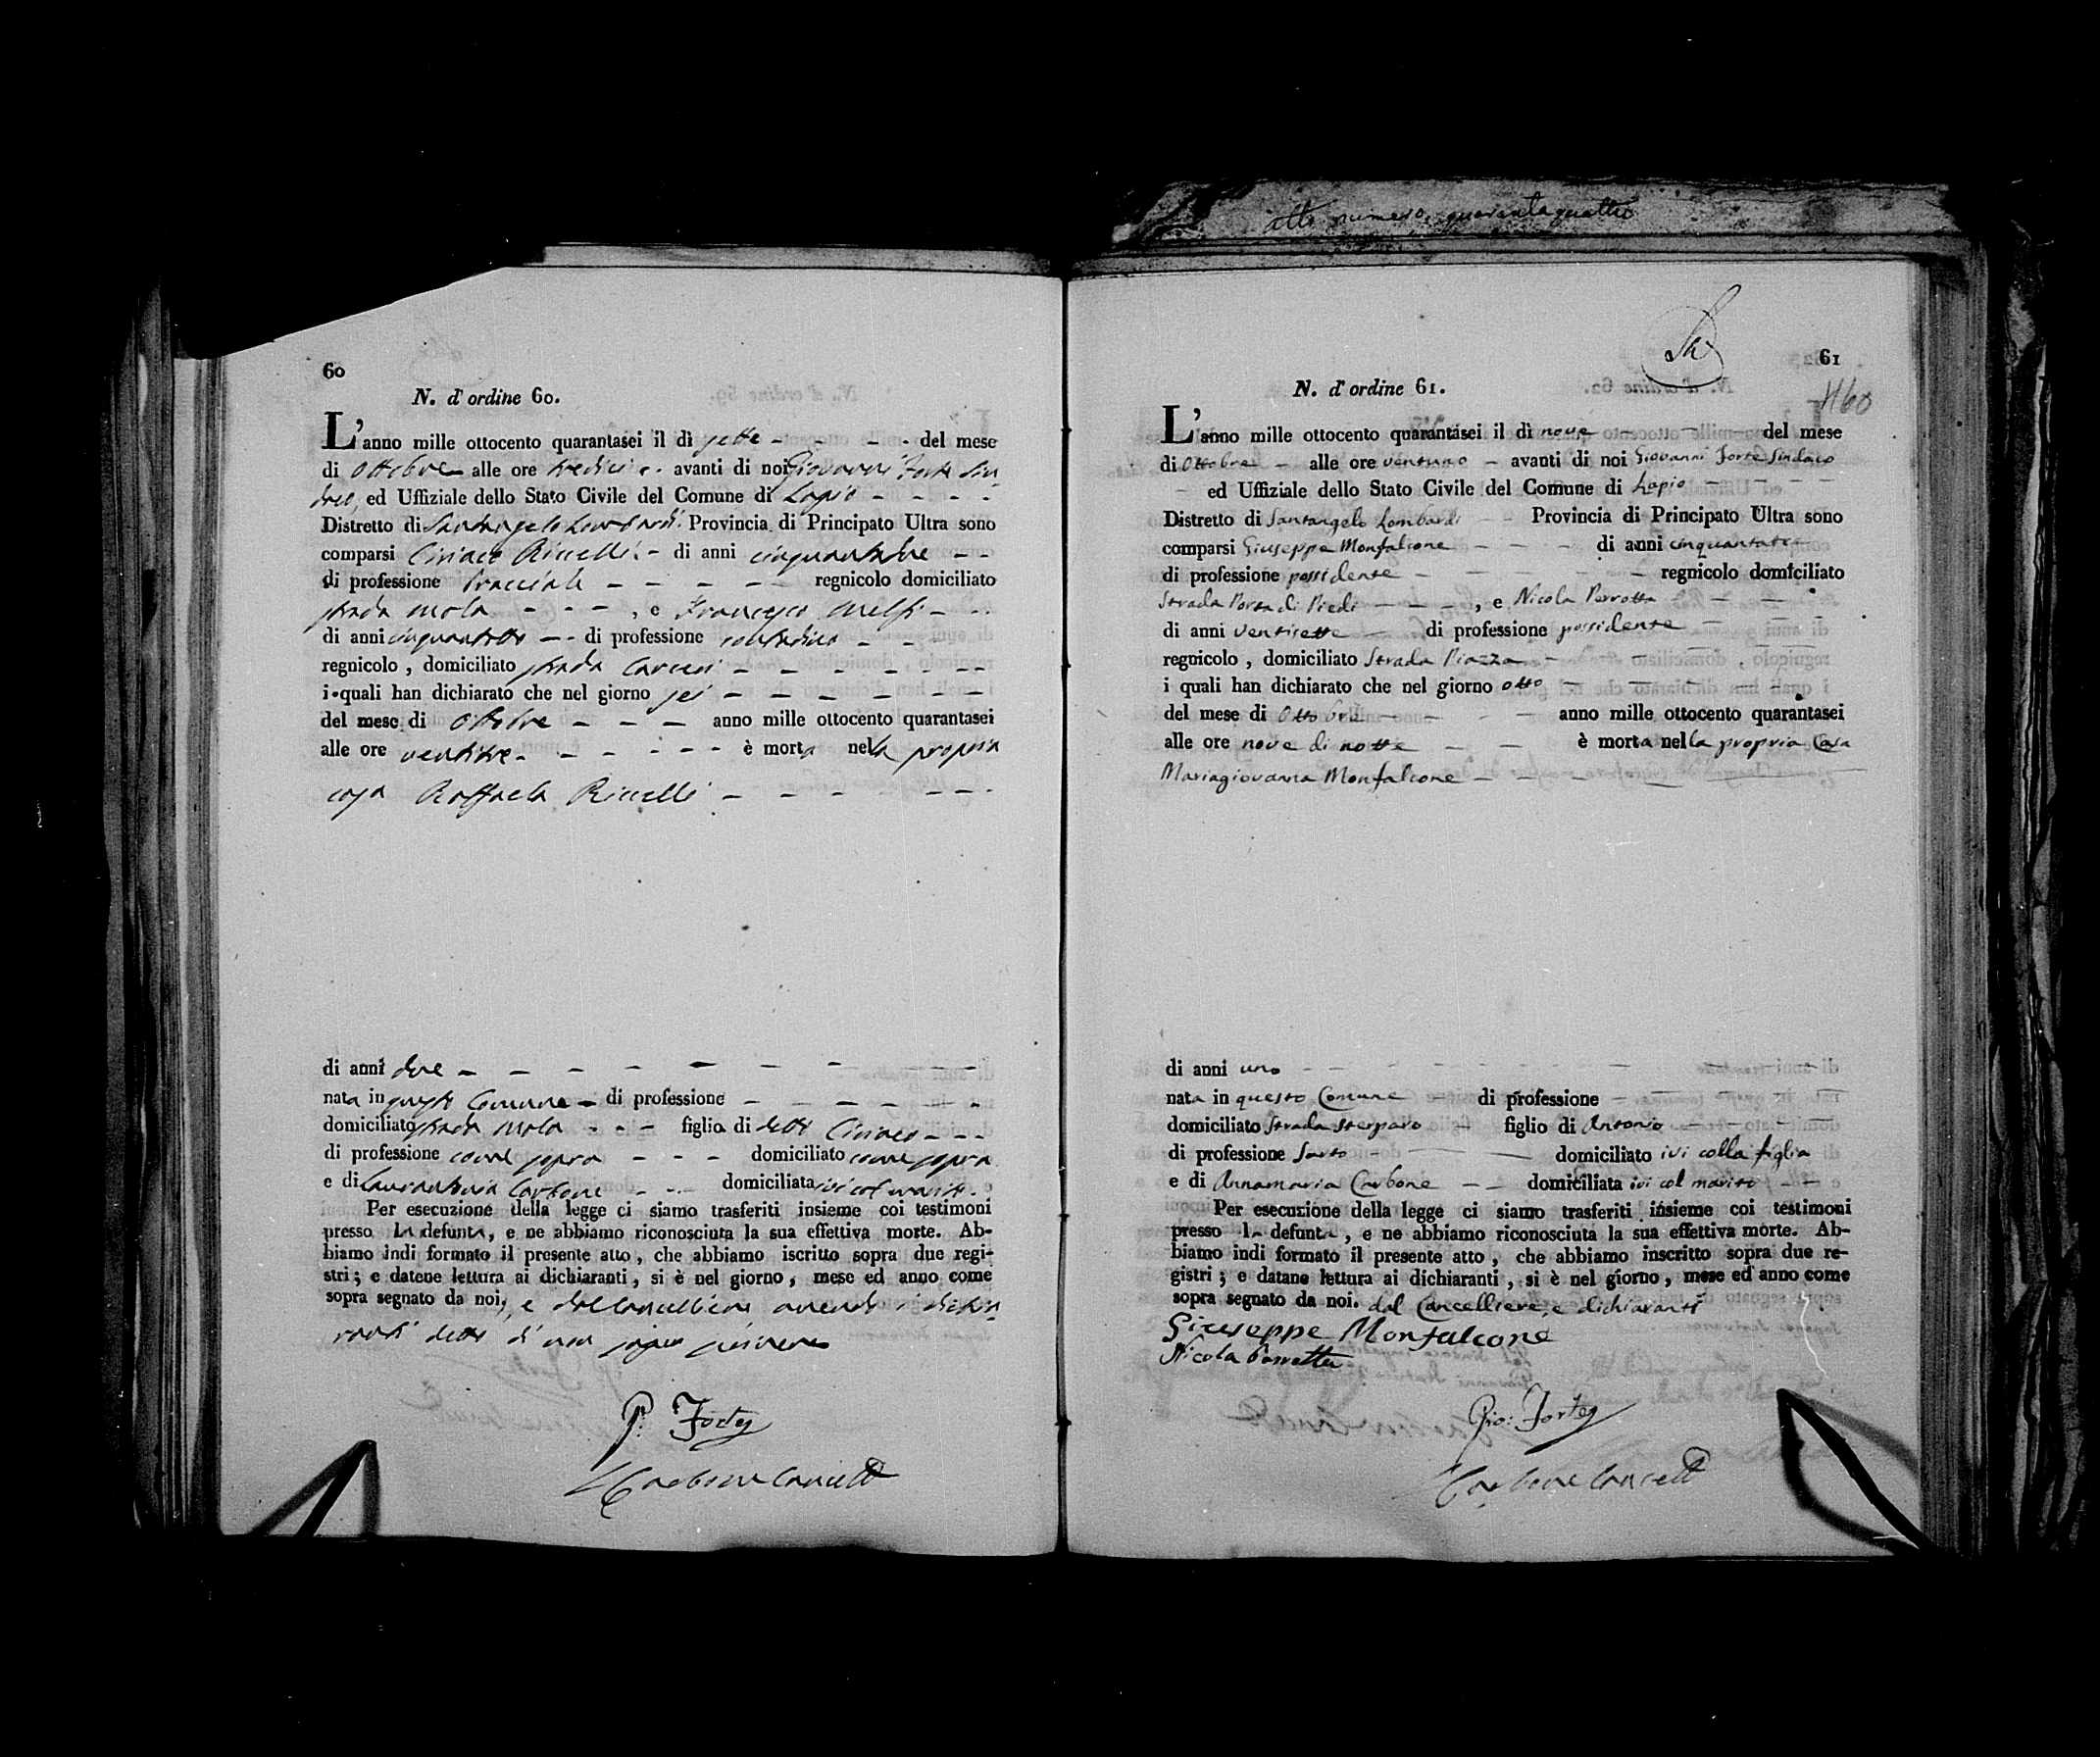 atto numero quarantaquattro
60
N. d'ordine 60.
L'anno mille ottocento quarantasei il dì sette del mese
di Ottobre alle ore tredici avanti di noi Giovanni Forte Sin
daco, ed Uffiziale dello Stato Civile del Comune di Lapio
Distretto di Santangelo Lombardi Provincia di Principato Ultra sono
comparsi Ciriaco Riccelli di anni
di professione bracciale regnicolo domiciliato
strada Mola, e Francesco Melfi
di anni cinquantotto di professione contadino
regnicolo, domiciliato strada
i quali han dichiarato che nel giorno sei
del mese di Ottobre anno mille ottocento quarantasei
alle ore ventitre è morta nella propria
casa Raffaela Riccelli
di anni due
nata in questo Comune di professione
domiciliato strada Mola figlia di detto Ciriaco
di professione come sopra domiciliato come sopra
e di Carbone domiciliata ivi col marito.
Per esecuzione della legge ci siamo trasferiti insieme coi testimoni
presso la defunta, e ne abbiamo riconosciuta la sua effettiva morte. Ab-
biamo indi formato il presente atto, che abbiamo iscritto sopra due regi-
stri; e datene lettura ai dichiaranti, si è nel giorno, mese ed anno come
sopra segnato da noi, e dal Cancelliere avendo i dichia
ranti detto di non saper scrivere
G. Forte
Carbone Cancell
61
1160
N. d'ordine 61.
L'anno mille ottocento quarantasei il dì nove del mese
di Ottobre alle ore ventuno avanti di noi Giovanni Forte Sindaco
ed Uffiziale dello Stato Civile del Comune di Lapio
Distretto di Santangelo Lombardi Provincia di Principato Ultra sono
comparsi Giuseppe Monfalcone di anni
di professione possidente regnicolo domiciliato
Strada Porta di Piedi, e Nicola Perrotta
di anni ventisette di professione possidente
regnicolo, domiciliato Strada Piazza
i quali han dichiarato che nel giorno otto
del mese di Ottobre anno mille ottocento quarantasei
alle ore nove di notte è morta nella propria Casa
Mariagiovanna Monfalcone
di anni uno
nata in questo Comune di professione
domiciliato Strada Sterparo figlio di Antonio
di professione Sarto domiciliato ivi colla figlia
e di Annamaria Carbone domiciliata ivi col marito
Per esecuzione della legge ci siamo trasferiti insieme coi testimoni
presso la defunta, e ne abbiamo riconosciuta la sua effettiva morte. Ab-
biamo indi formato il presente atto, che abbiamo inscritto sopra due re-
gistri; e datane lettura ai dichiaranti, si è nel giorno, mese ed anno come
sopra segnato da noi. dal Cancelliere, e dichiaranti
Giuseppe Monfalcone
Nicola Perrotta
Gio: Forte
Carbone Cancell